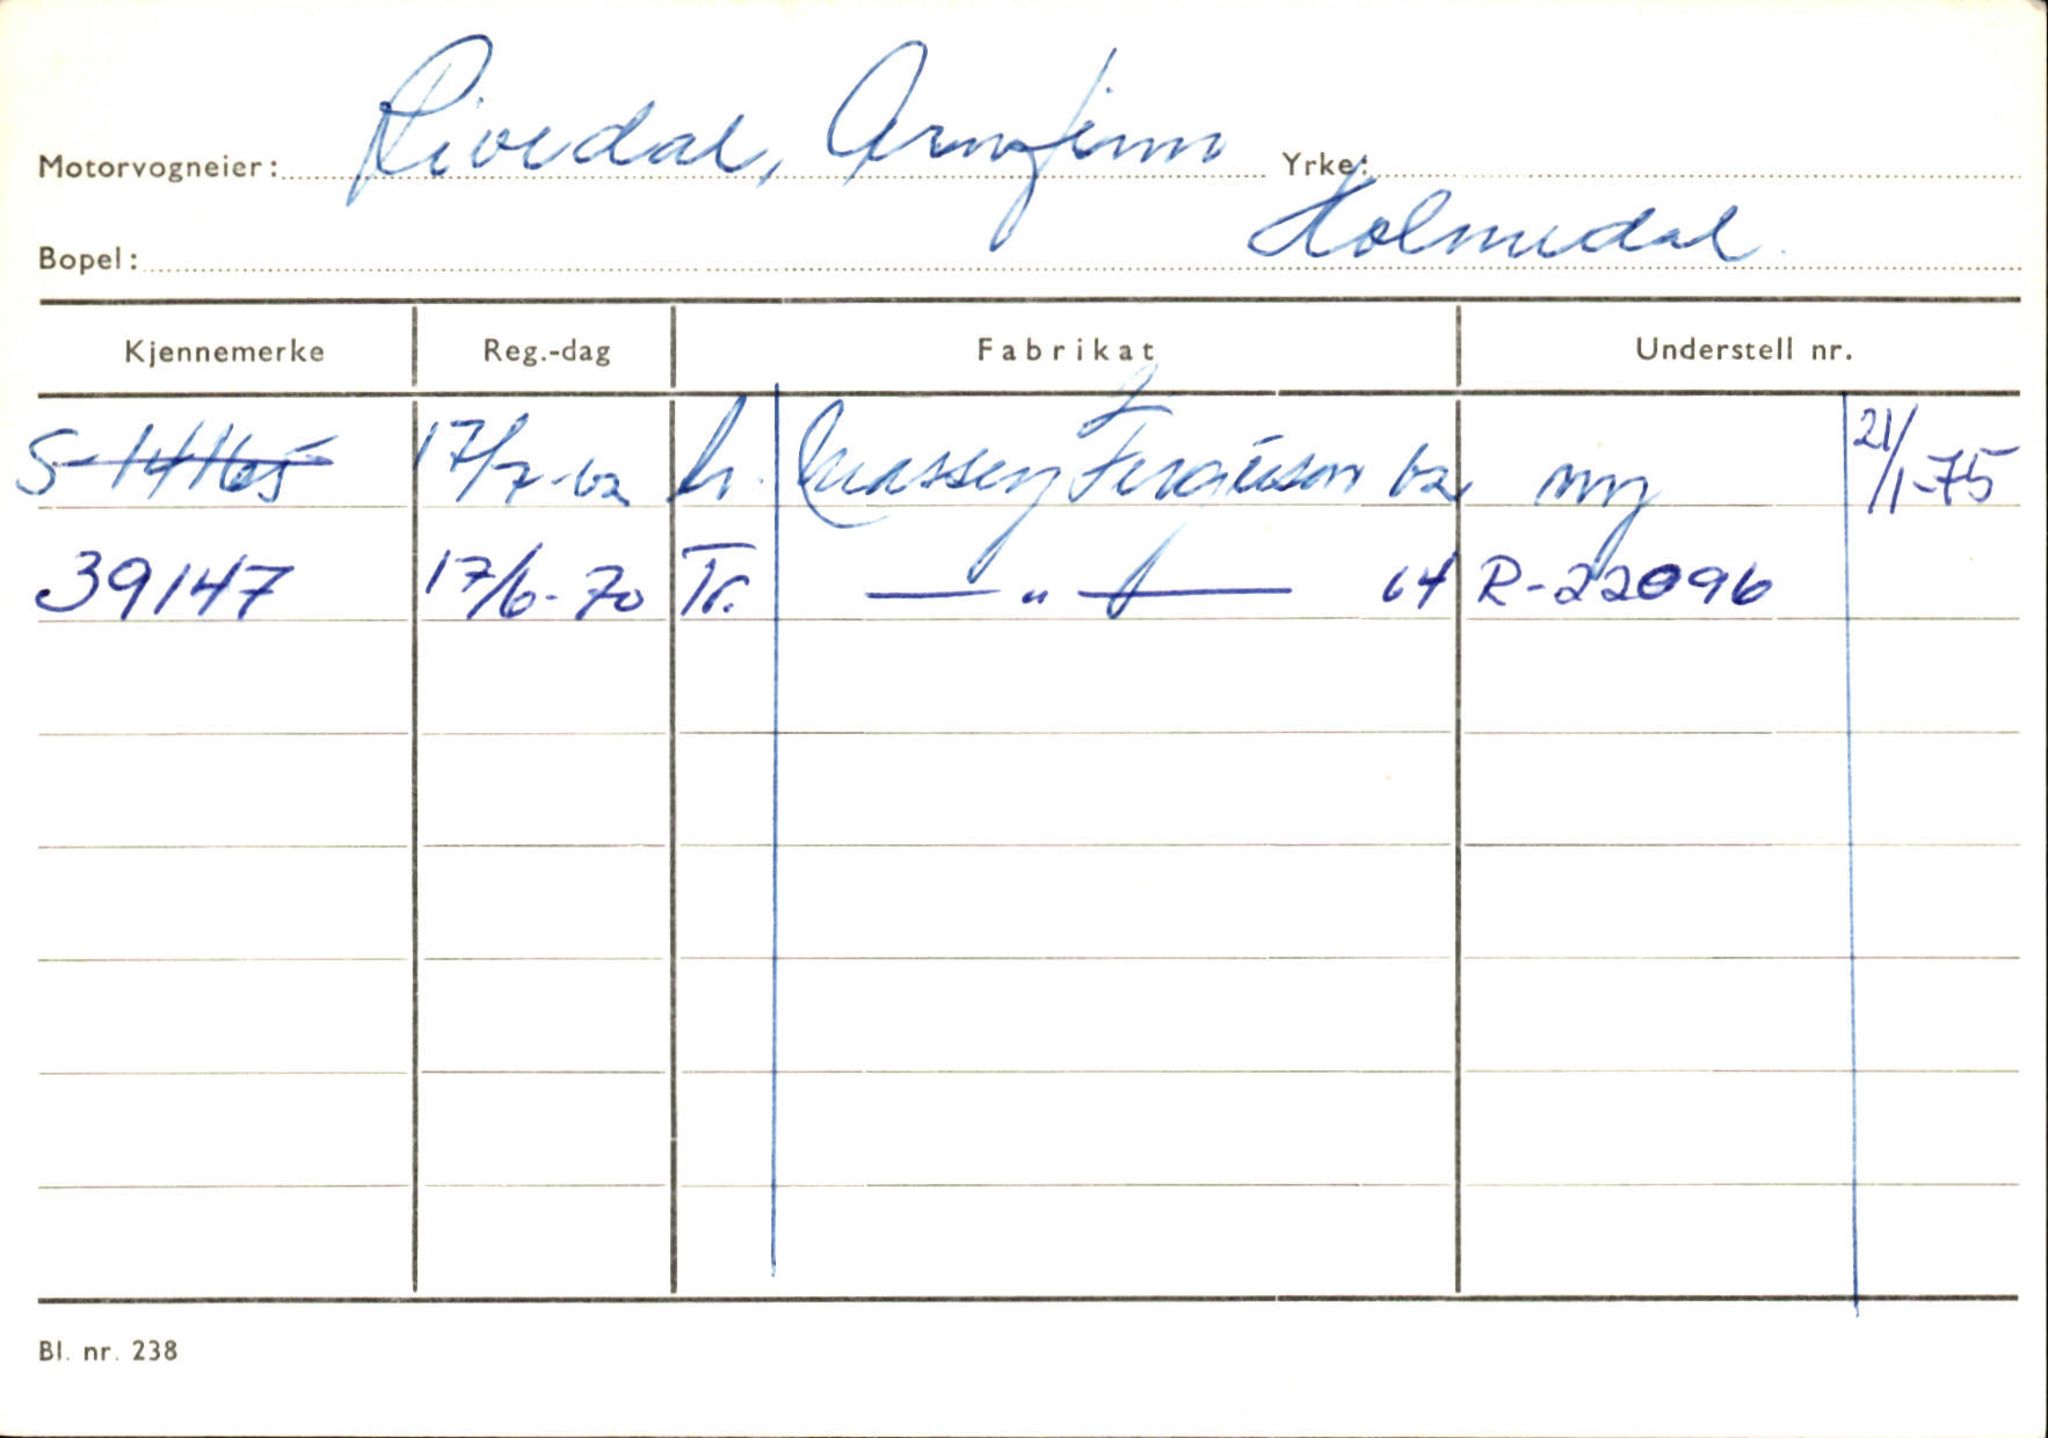 Motorvogneier: Rivedal, Arnfinn Yrke:
Bopel: Holmedal.
Kjennemerke Reg.-dag Fabrikat Understell nr.
S-14165 17/7-62 tr. Massey Ferguson 62 ny 21/1-75
39147 17/6-70 Tr. — " — 64 R-22096
Bl. nr. 238